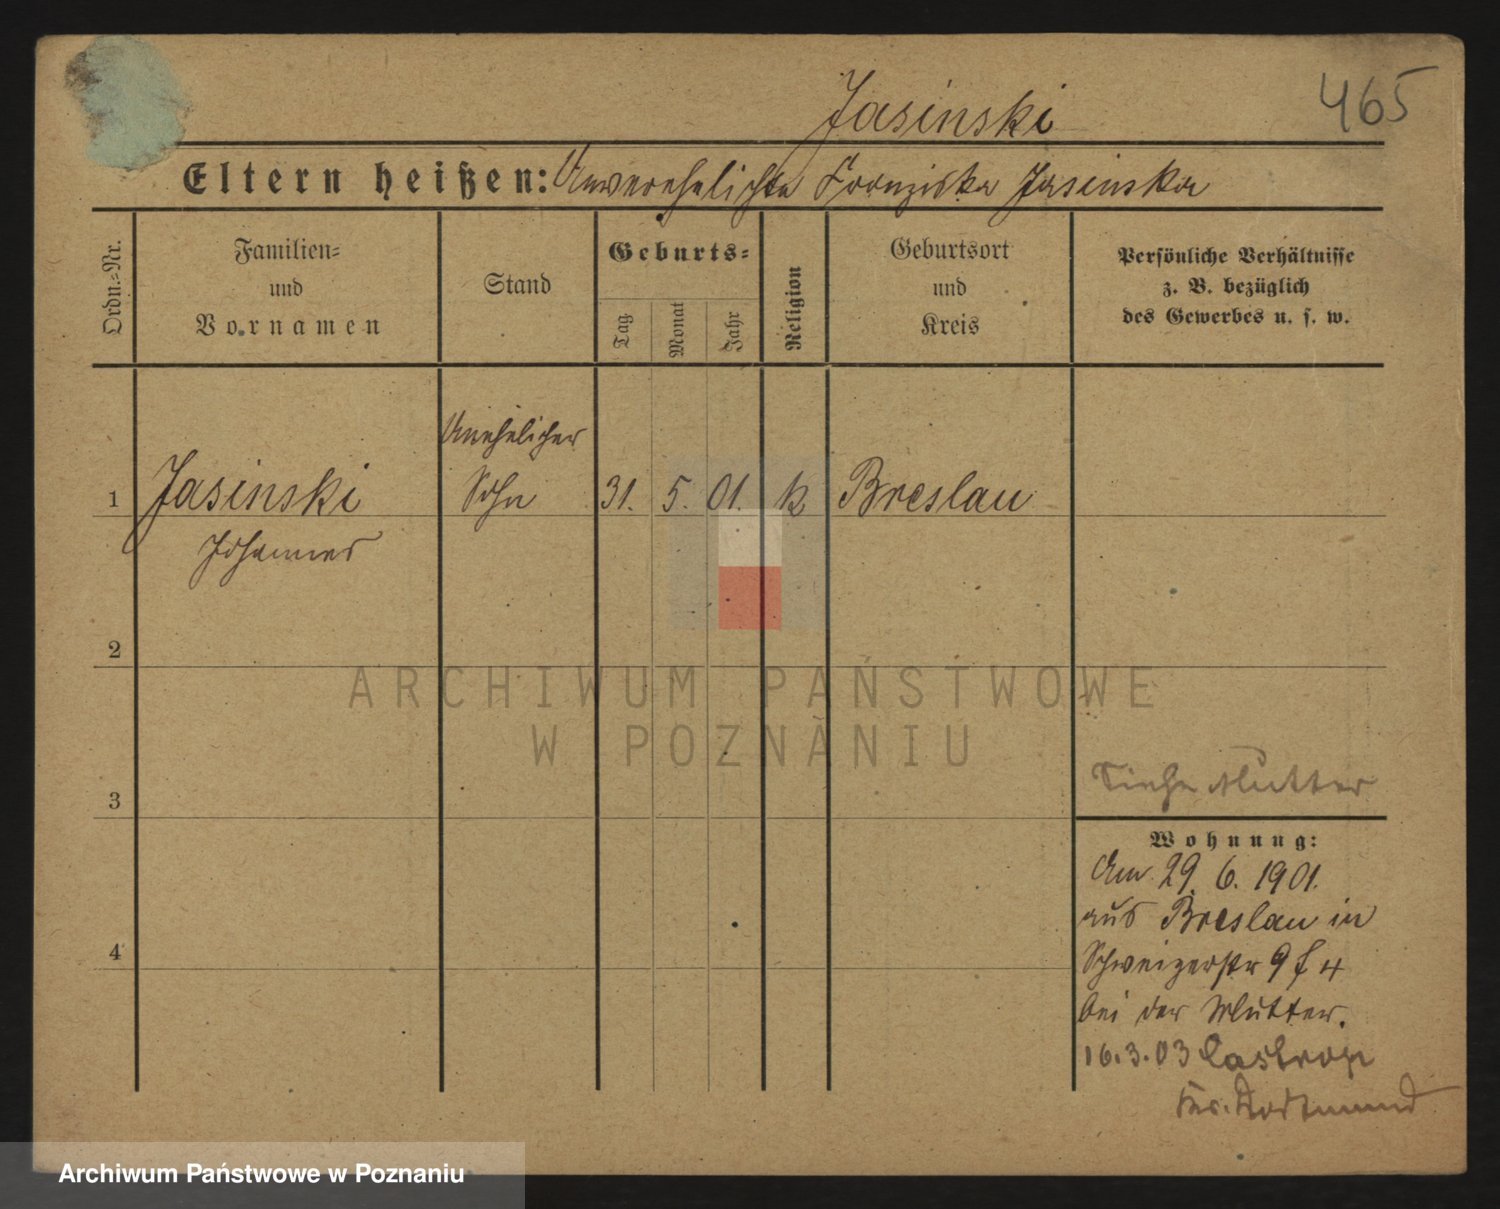 Jasinski
465
Eltern heißen: Unverehelichte Franziska Jasinska
Ordn.=Nr.
Familien=
und
Vornamen
Stand
Geburts=
Tag
Monat
Jahr
Religion
Geburtsort
und
Kreis
Persönliche Verhältnisse
z. B. bezüglich
des Gewerbes u. s. w.
Unehelicher
1 Jasinski Sohn 31. 5. 01. k Breslau
Johannes
2
ARCHIWUM PAŃSTWOWE
W POZNANIU
Siehe Mutter
3
Wohnung:
Am 29. 6. 1901.
aus Breslau in
Schweizerstr 9 f 4
4
bei der Mutter.
16.3.03 Castrop
Kr. Dortmund
Archiwum Państwowe w Poznaniu